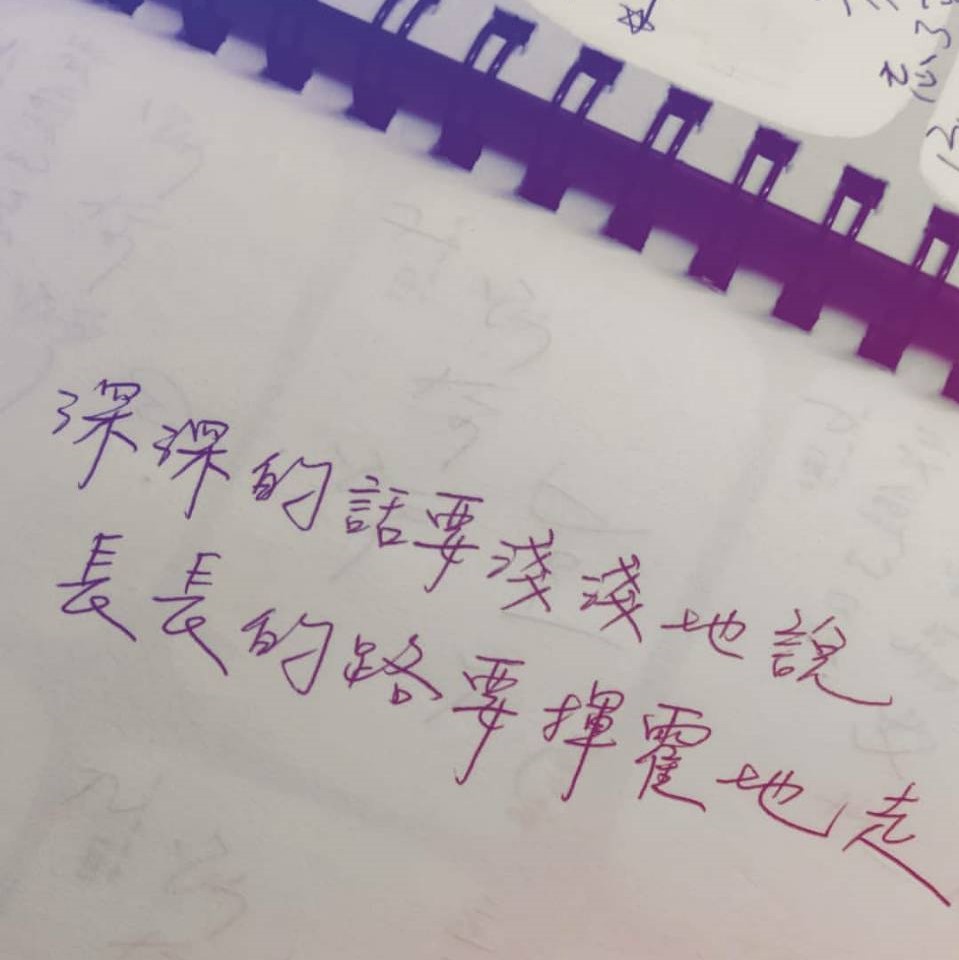 深深的話要淺淺地說
長長的路要揮霍地走